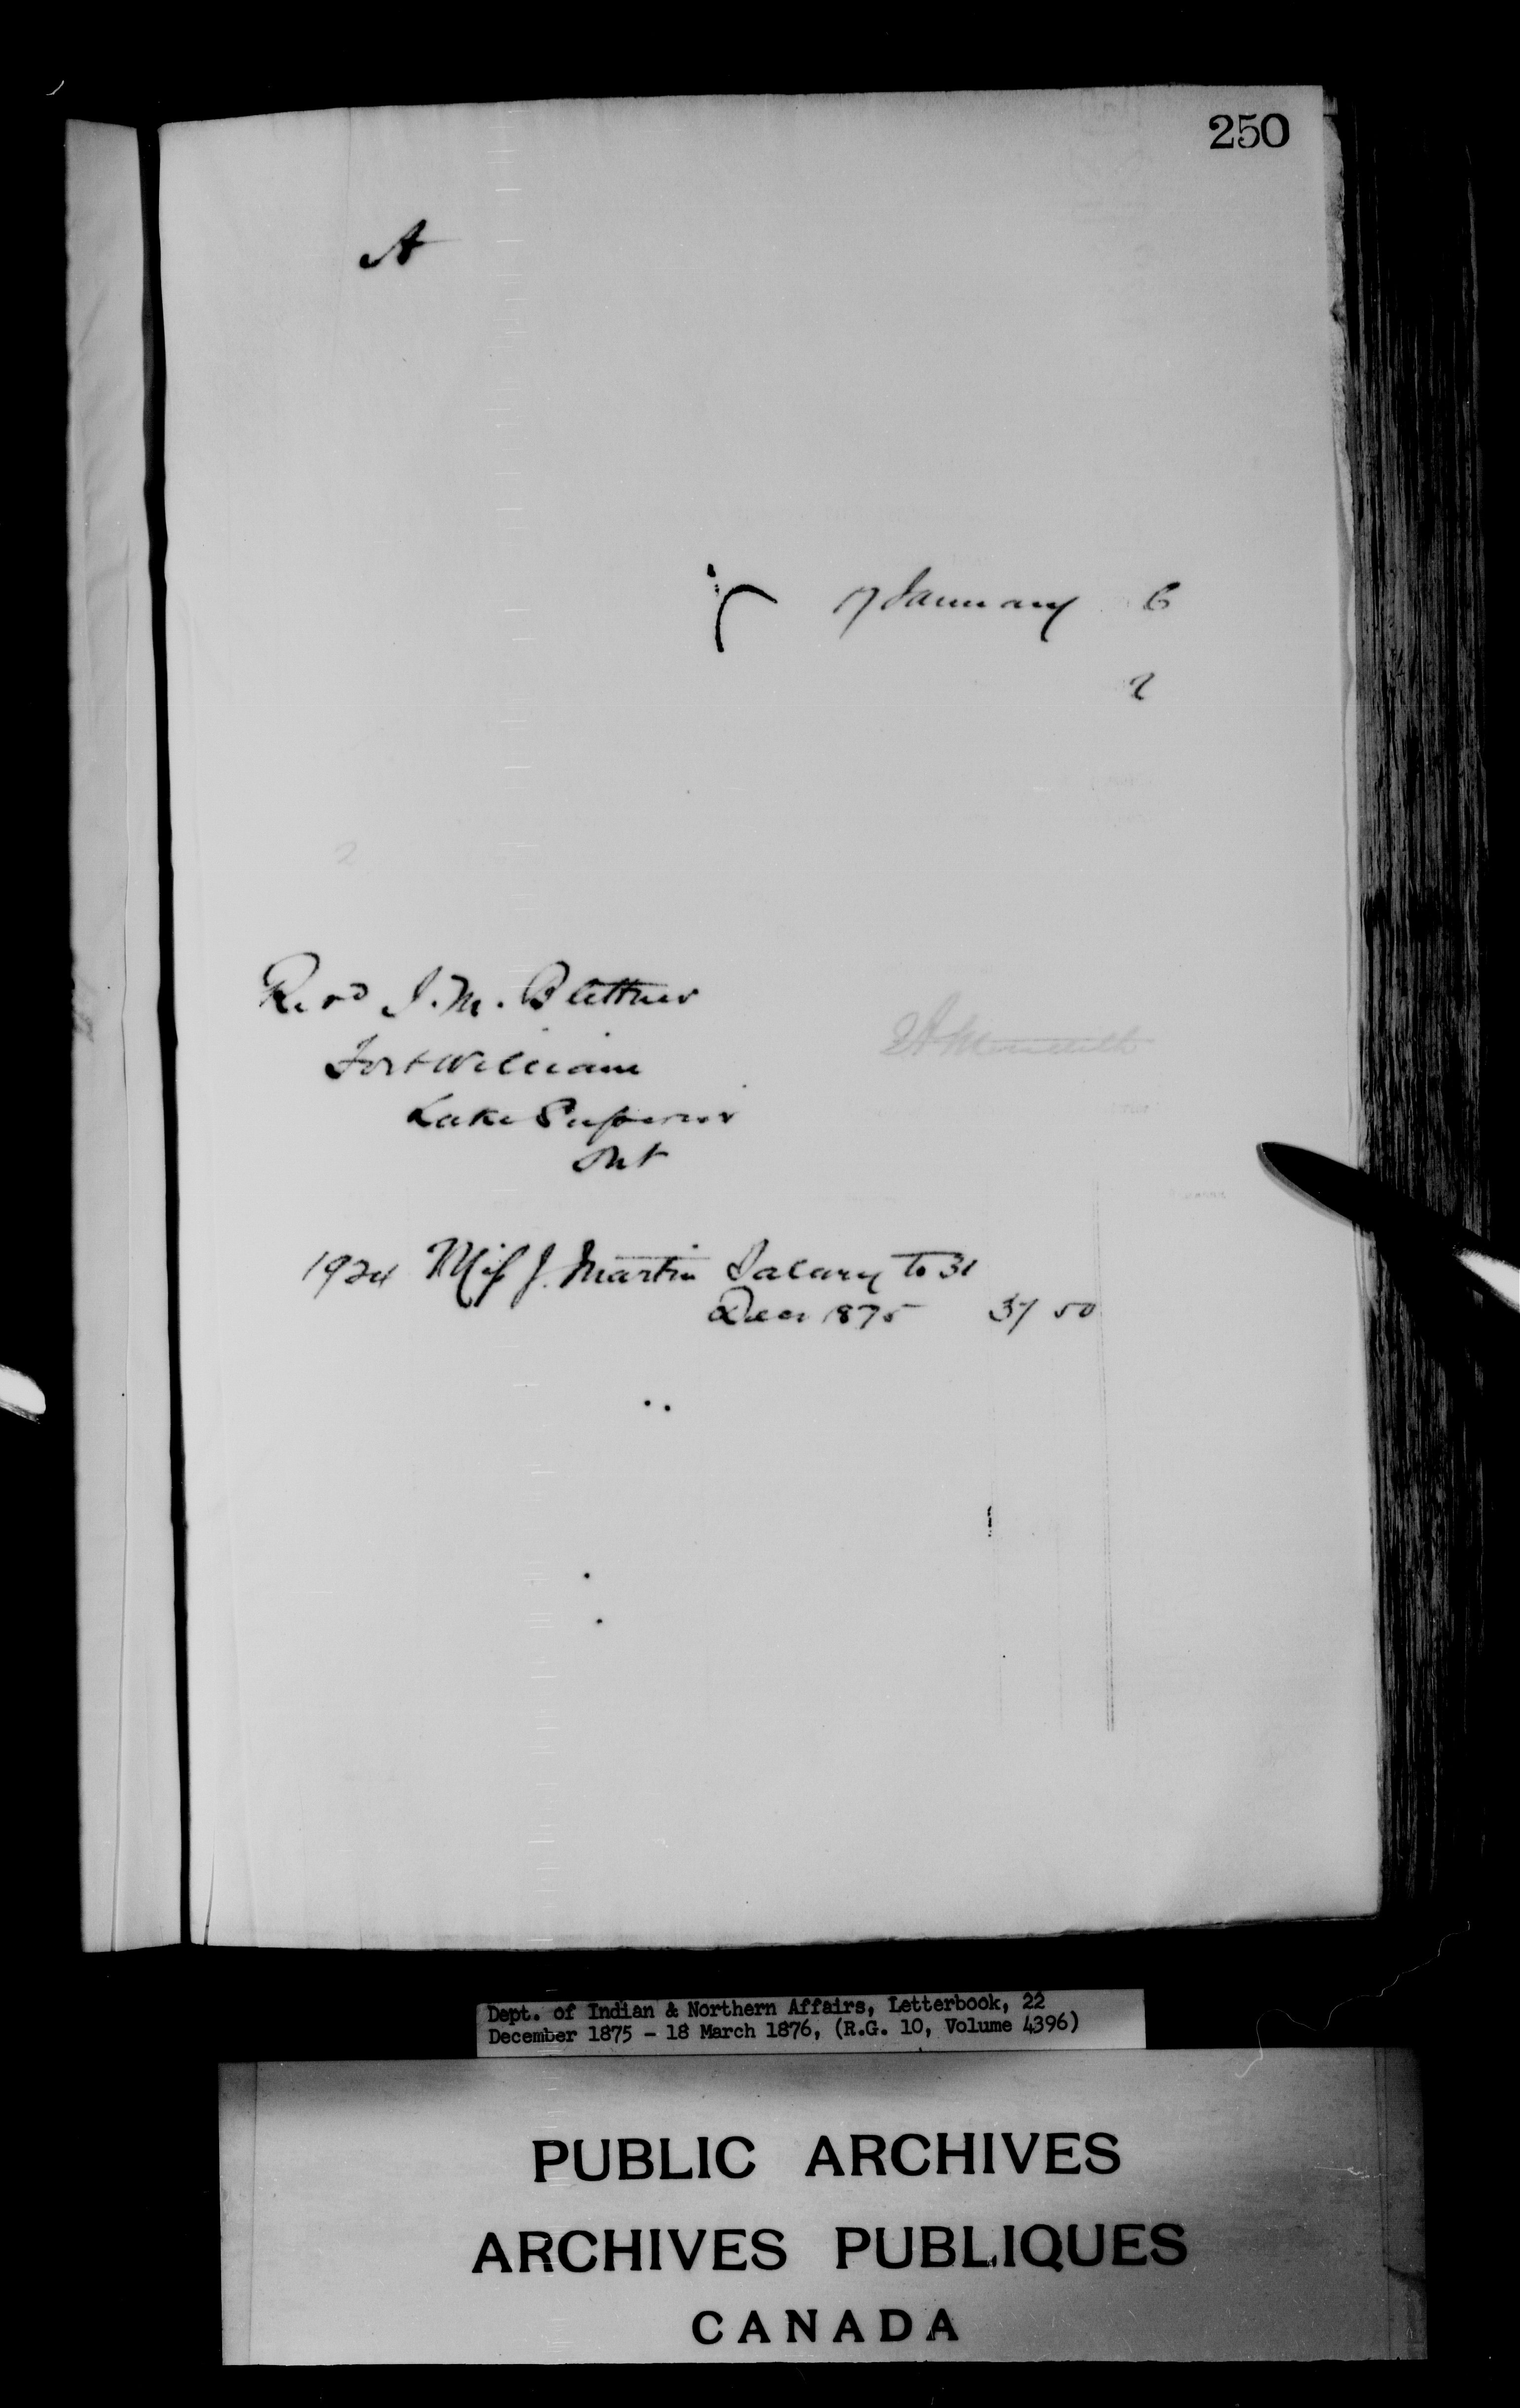 250
A
17 January 6
2
Revd J. M. Blettner
Fort William
Lake Superior
Ont
1924 Miss J. Martin Salary to 31
Decr 1875 37 50
Dept. of Indian & Northern Affairs, Letterbook, 22
December 1875 - 18 March 1876, (R.G. 10, Volume 4396)
PUBLIC ARCHIVES
ARCHIVES PUBLIQUES
CANADA